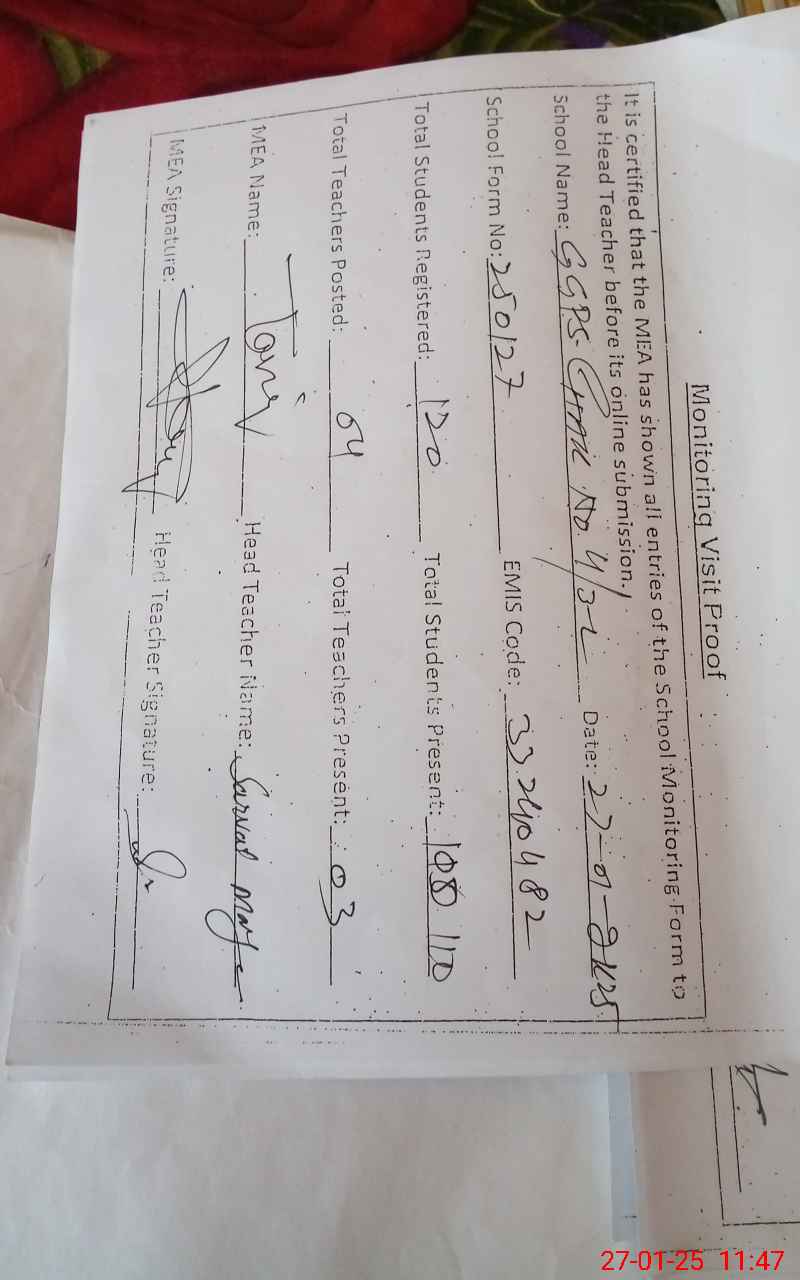 Monitoring Visit Proof
It is certified that the MEA has shown all entries of the School Monitoring Form to
the Head Teacher before its online submission.
School Name: GGPS. Chak No. 4/3-L Date: 27-01-2025
School Form No: 250127 EMIS Code: 33240482
Total Students Registered: 120 Total Students Present: 110
Total Teachers Posted: 04 Total Teachers Present: 03
MEA Name: Head Teacher Name:
MEA Signature: Head Teacher Signature:
27-01-25 11:47